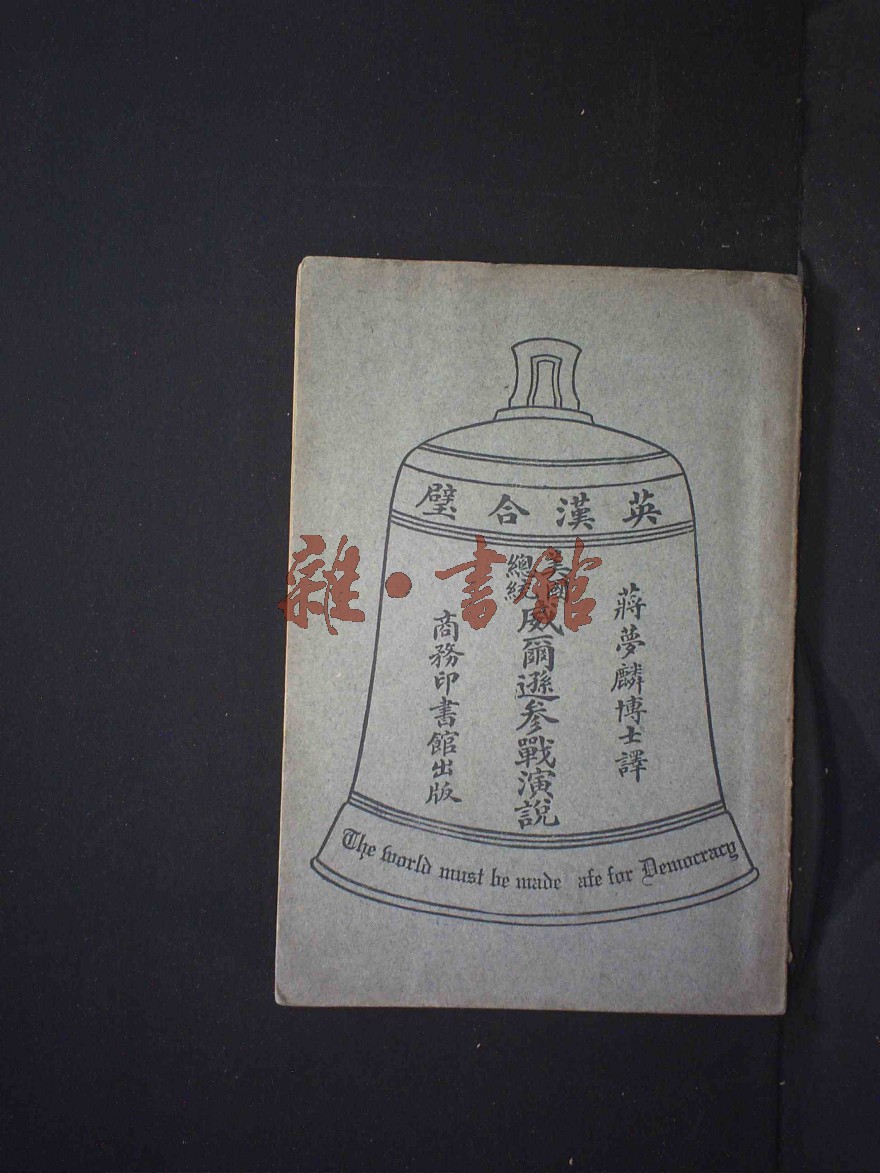 英漢合璧
蔣夢麟博士譯
美國
總統
威爾遜參戰演說
商務印書館出版
The world must be made afe for Democracy
雜·書館